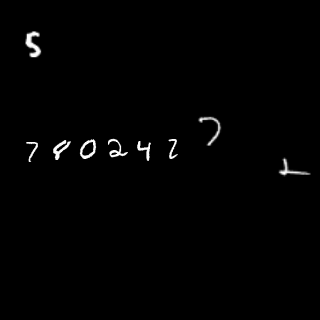 5
780242
7